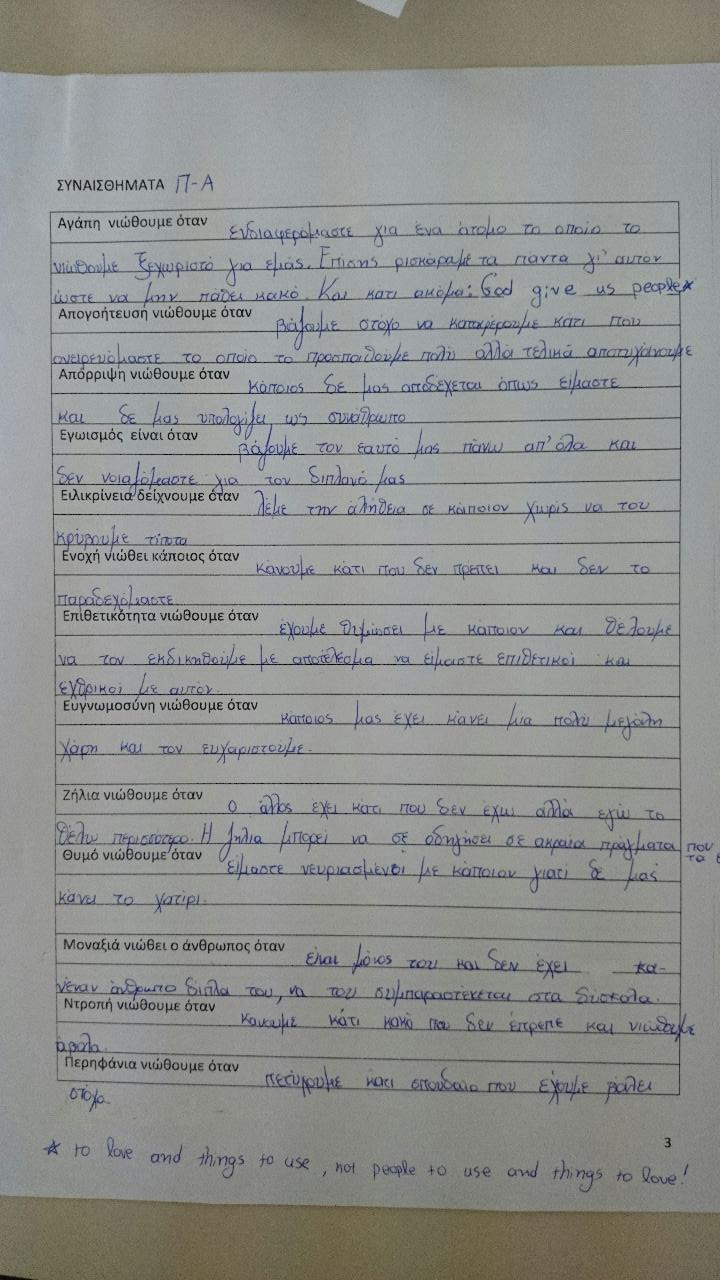 ΣΥΝΑΙΣΘΗΜΑΤΑ Π-Α
Αγάπη νιώθουμε όταν ενδιαφερόμαστε για ένα άτομο το οποίο το
νιώθουμε ξεχωριστό για εμάς. Επισης ρισκάραμε τα πάντα γι' αυτόν
ώστε να μην πάθει κακό. Και κατι ακόμα: God give us people*
Απογοήτευση νιώθουμε όταν βάζουμε στόχο να καταφέρουμε κάτι που
ονειρευόμαστε το οποίο το προσπαθούμε πολύ αλλά τελικά αποτυχάνουμε
Απόρριψη νιώθουμε όταν κάποιος δε μας αποδέχεται όπως είμαστε
και δε μας υπολογίζει ως συνάθρωπο
Εγωισμός είναι όταν βάζουμε τον εαυτό μας πάνω απ' όλα και
δεν νοιαζόμαστε για τον διπλανό μας
Ειλικρίνεια δείχνουμε όταν λέμε την αλήθεια σε κάποιον χωρίς να του
κρύβουμε τίποτα
Ενοχή νιώθει κάποιος όταν κάνουμε κάτι που δεν πρέπει και δεν το
παραδεχόμαστε
Επιθετικότητα νιώθουμε όταν έχουμε θυμώσει με κάποιον και θέλουμε
να τον εκδικηθούμε με αποτέλεσμα να είμαστε επιθετικοί και
εχθρικοί με αυτόν.
Ευγνωμοσύνη νιώθουμε όταν κάποιος μας έχει κάνει μια πολύ μεγάλη
χάρη και τον ευχαριστούμε.
Ζήλια νιώθουμε όταν ο άλλος εχει κάτι που δεν έχω αλλά εγώ το
θέλω περισσότερο. Η ζήλια μπορεί να σε οδηγήσει σε ακραία πράγματα που
τα
Θυμό νιώθουμε όταν είμαστε νευριασμένοι με κάποιον γιατί δε μας
κάνει το χατίρι.
Μοναξιά νιώθει ο άνθρωπος όταν είναι μόνος του και δεν έχει κα-
νέναν άνθρωπο δίπλα του, να του συμπαραστέκεται στα δύσκολα.
Ντροπή νιώθουμε όταν κάνουμε κάτι κακό που δεν έπρεπε και νιώθουμε
άβολα.
Περηφάνια νιώθουμε όταν πετύχουμε κάτι σπουδαίο που έχουμε βάλει
στόχο.
3
* to love and things to use, not people to use and things to love!